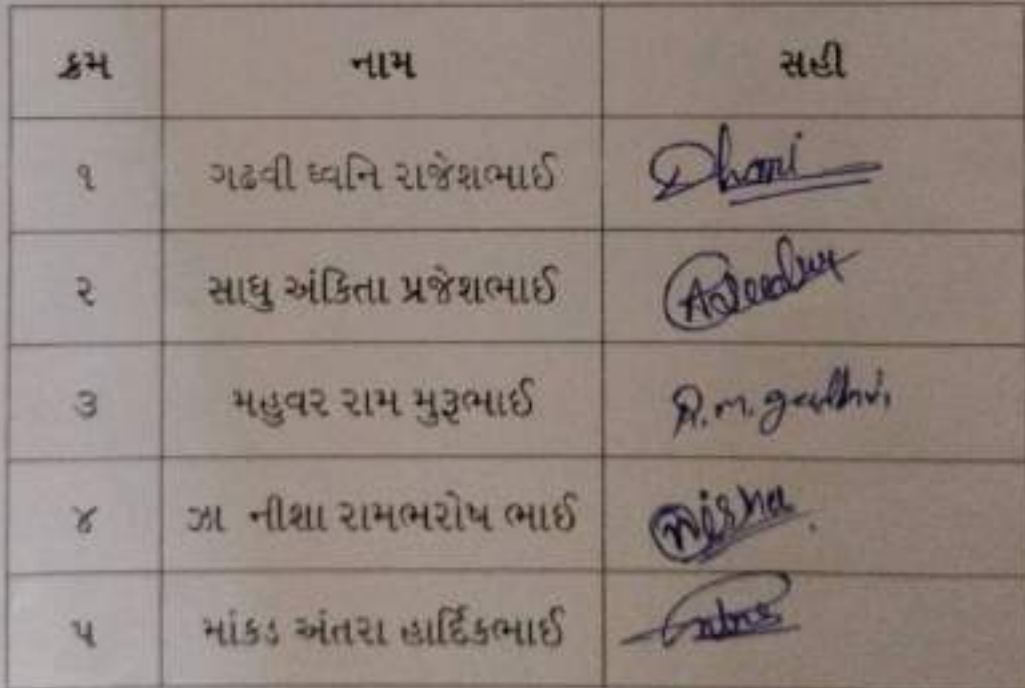 ક્રમ નામ સહી
૧ ગઢવી ધ્વનિ રાજેશભાઈ Dhani
૨ સાધુ અંકિતા પ્રજેશભાઈ
૩ મહુવર રામ મુરૂભાઈ R.m.gadhvi
૪ ઝા નીશા રામભરોષ ભાઈ Nisha
૫ માંકડ અંતરા હાર્દિકભાઈ